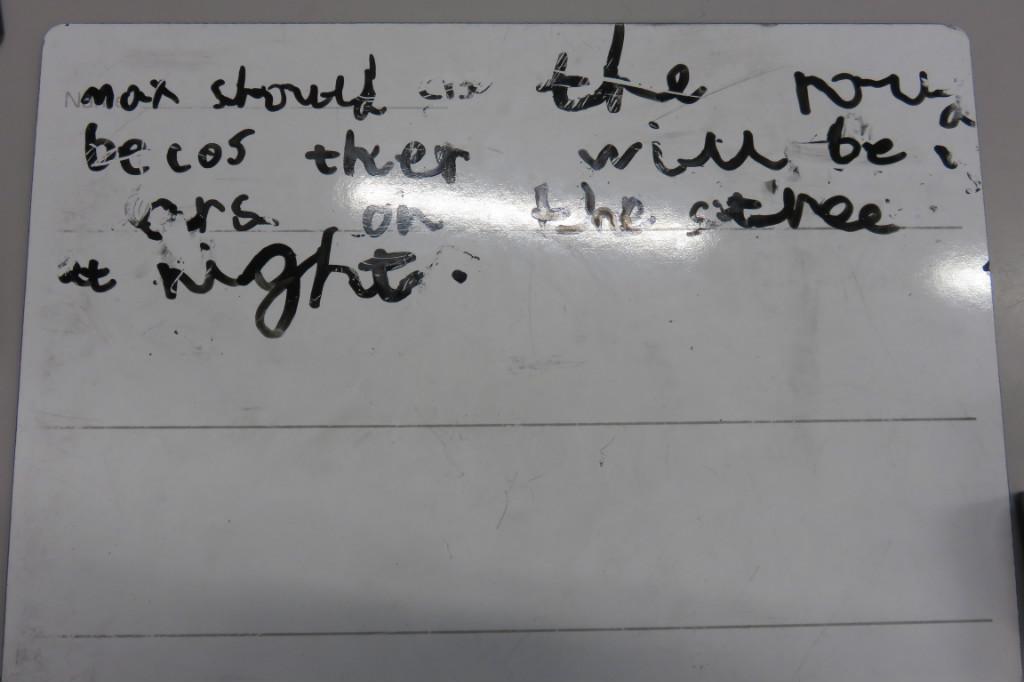 max should the
becos ther will be
on the stree
at night.